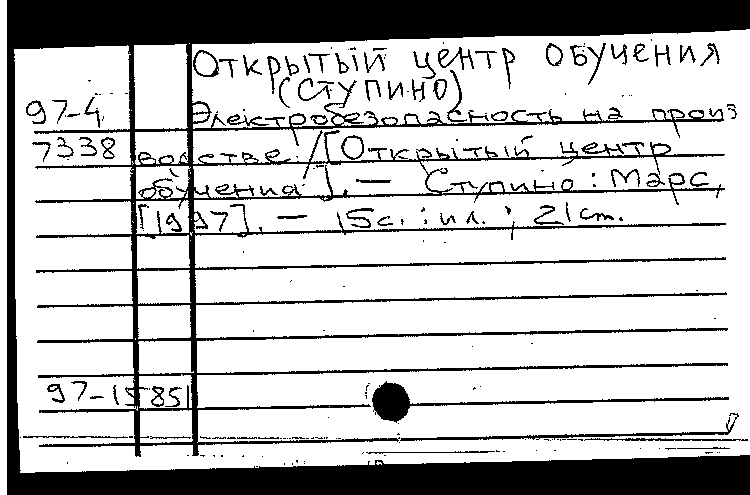 Открытый центр обучения
(Ступино)
97-4 Электробезопасность на произ
7338 водстве / [Открытый центр
обучения]. — Ступино : Марс,
[1997]. — 15с. : ил. ; 21 см.
97-15851